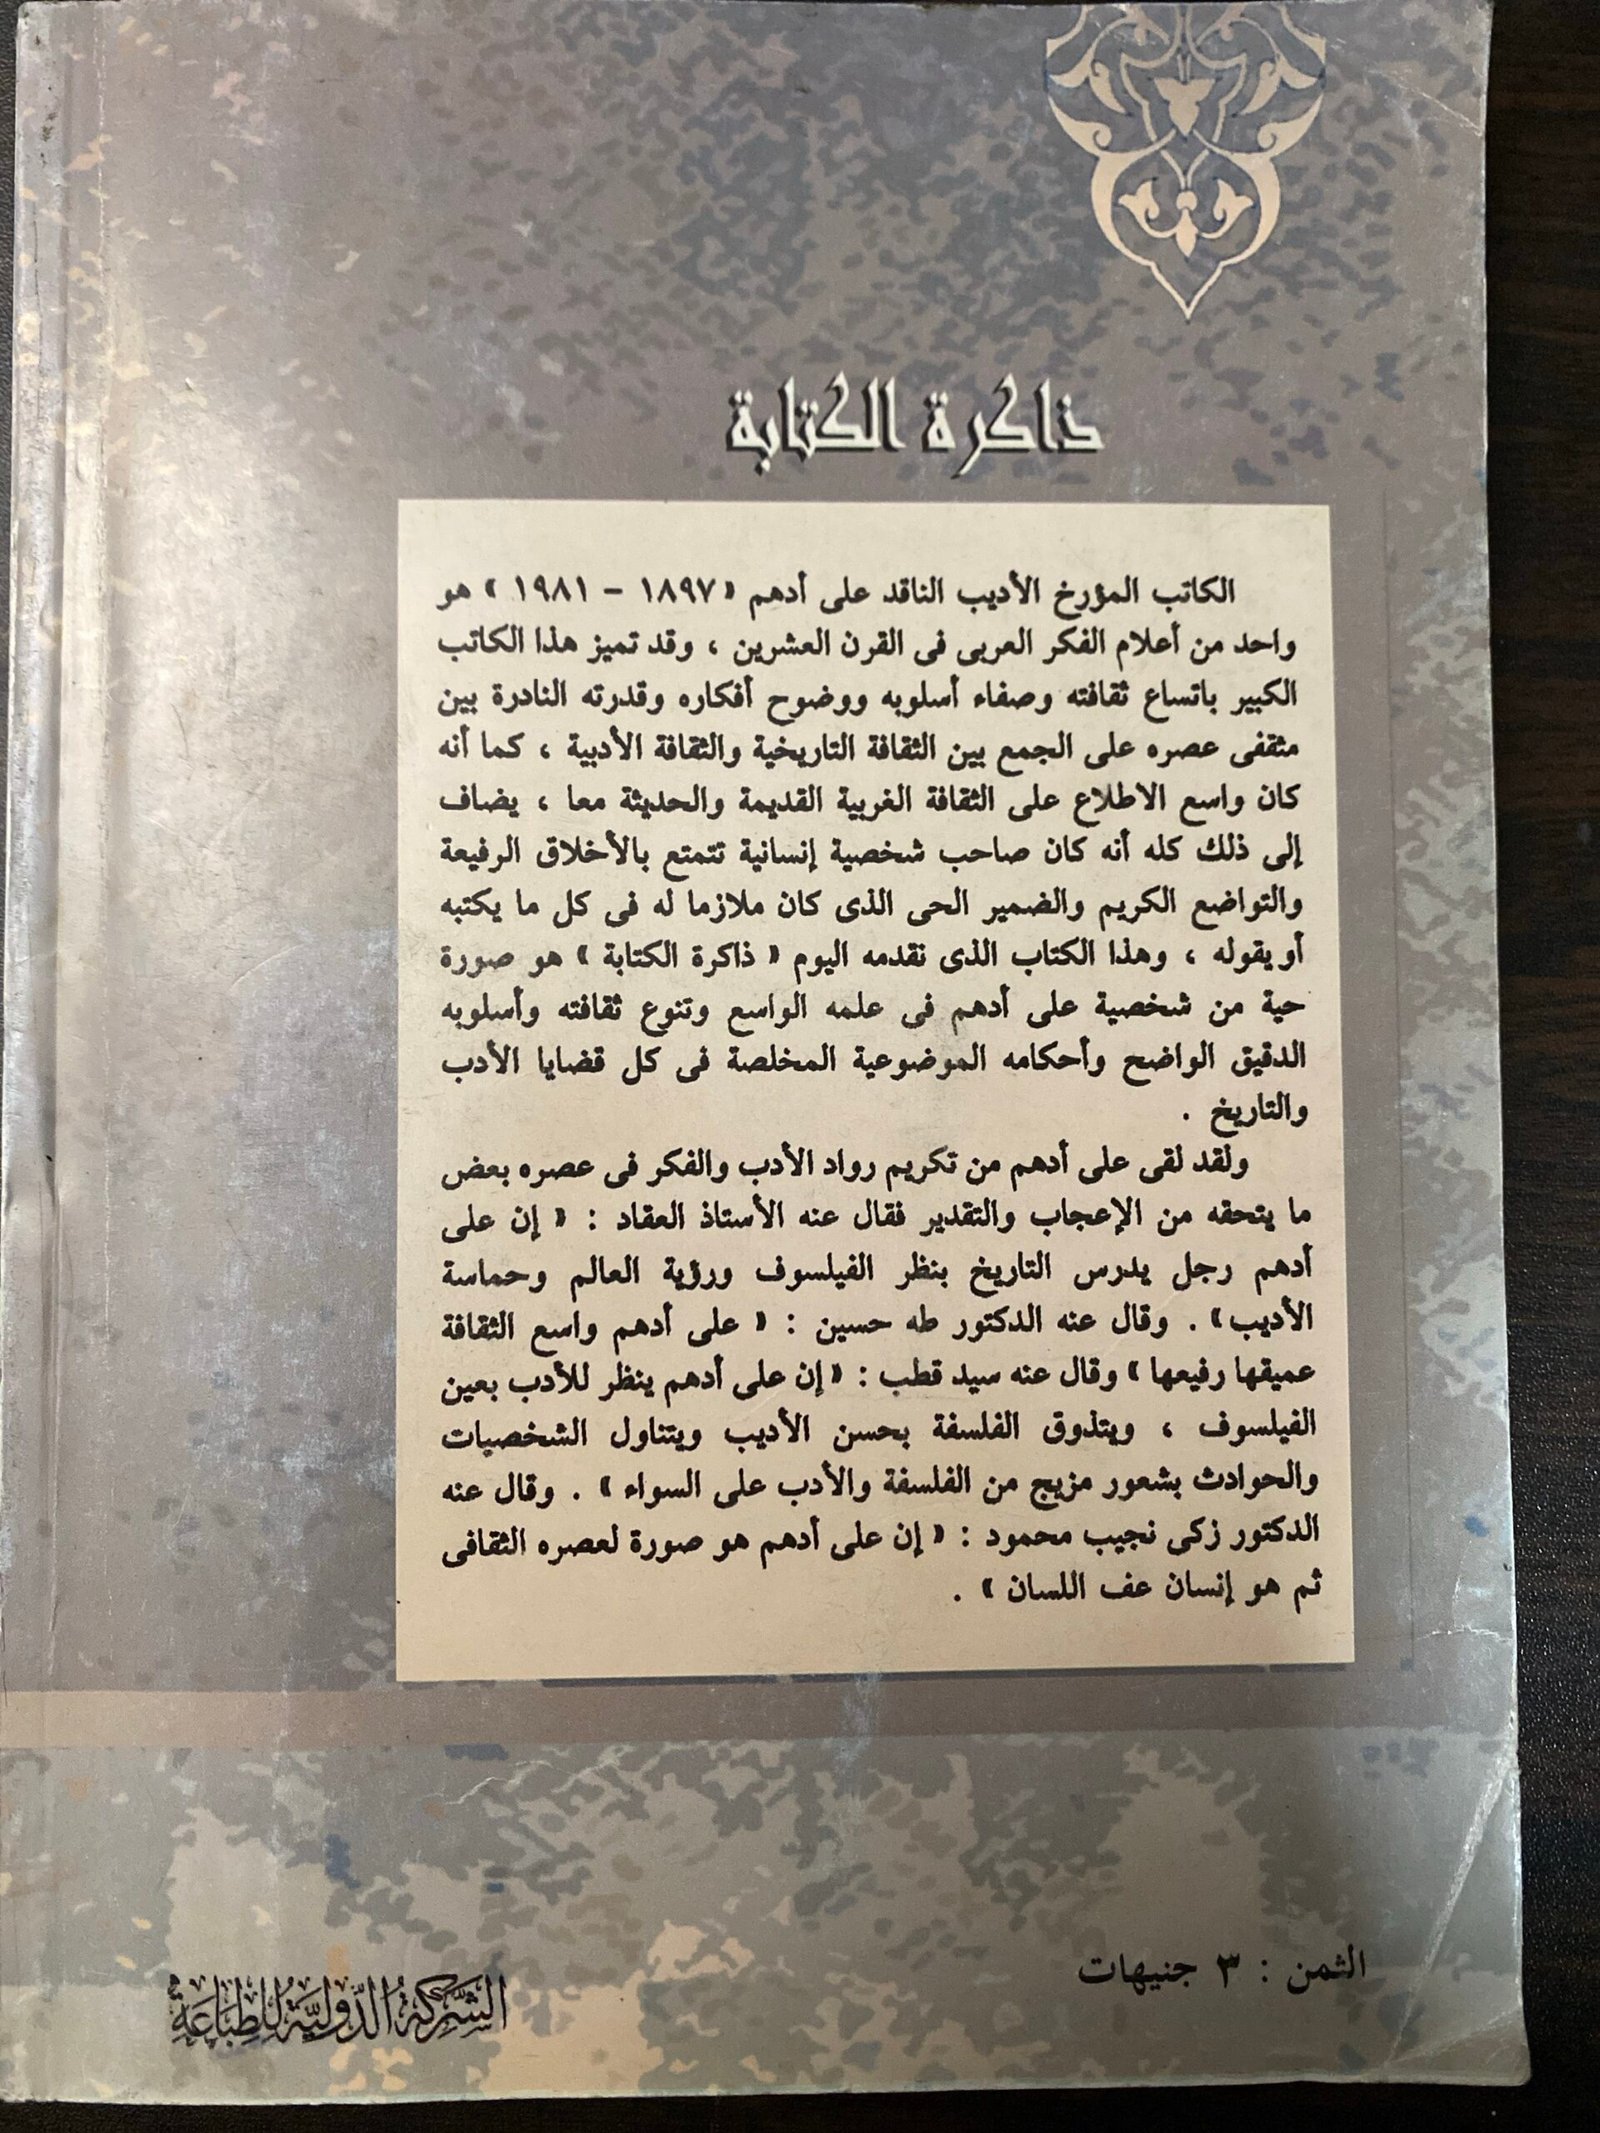 ذاكرة الكتابة
الكاتب المؤرخ الأديب الناقد على أدهم « ١٨٩٧ – ١٩٨١ » هو
واحد من أعلام الفكر العربى فى القرن العشرين ، وقد تميز هذا الكاتب
الكبير باتساع ثقافته وصفاء أسلوبه ووضوح أفكاره وقدرته النادرة بين
مثقفى عصره على الجمع بين الثقافة التاريخية والثقافة الأدبية ، كما أنه
كان واسع الاطلاع على الثقافة الغربية القديمة والحديثة معا ، يضاف
إلى ذلك كله أنه كان صاحب شخصية إنسانية تتمتع بالأخلاق الرفيعة
والتواضع الكريم والضمير الحى الذى كان ملازما له فى كل ما يكتبه
أو يقوله ، وهذا الكتاب الذى نقدمه اليوم « ذاكرة الكتابة » هو صورة
حية من شخصية على أدهم فى علمه الواسع وتنوع ثقافته وأسلوبه
الدقيق الواضح وأحكامه الموضوعية المخلصة فى كل قضايا الأدب
والتاريخ .
ولقد لقى على أدهم من تكريم رواد الأدب والفكر فى عصره بعض
ما يتحقه من الإعجاب والتقدير فقال عنه الأستاذ العقاد : « إن على
أدهم رجل يدرس التاريخ بنظر الفيلسوف ورؤية العالم وحماسة
الأديب» . وقال عنه الدكتور طه حسين : « على أدهم واسع الثقافة
عميقها رفيعها » وقال عنه سيد قطب : « إن على أدهم ينظر للأدب بعين
الفيلسوف ، ويتذوق الفلسفة بحسن الأديب ويتناول الشخصيات
والحوادث بشعور مزيج من الفلسفة والأدب على السواء » . وقال عنه
الدكتور زكى نجيب محمود : « إن على أدهم هو صورة لعصره الثقافى
ثم هو إنسان عف اللسان » .
الثمن : ٣ جنيهات
الشَّركةُ الدَّوليَّةُ للطِبَاعَةِ